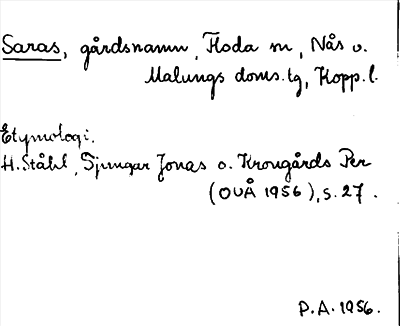 Saras, gårdsnamn, Floda sn, Nås o.
Malungs doms.tg, Kopp.l.
Etymologi.
H. Ståhl, Sjungar Jonas o. Krongårds Per
(OUÅ 1956), s. 27.
P.A. 1956.